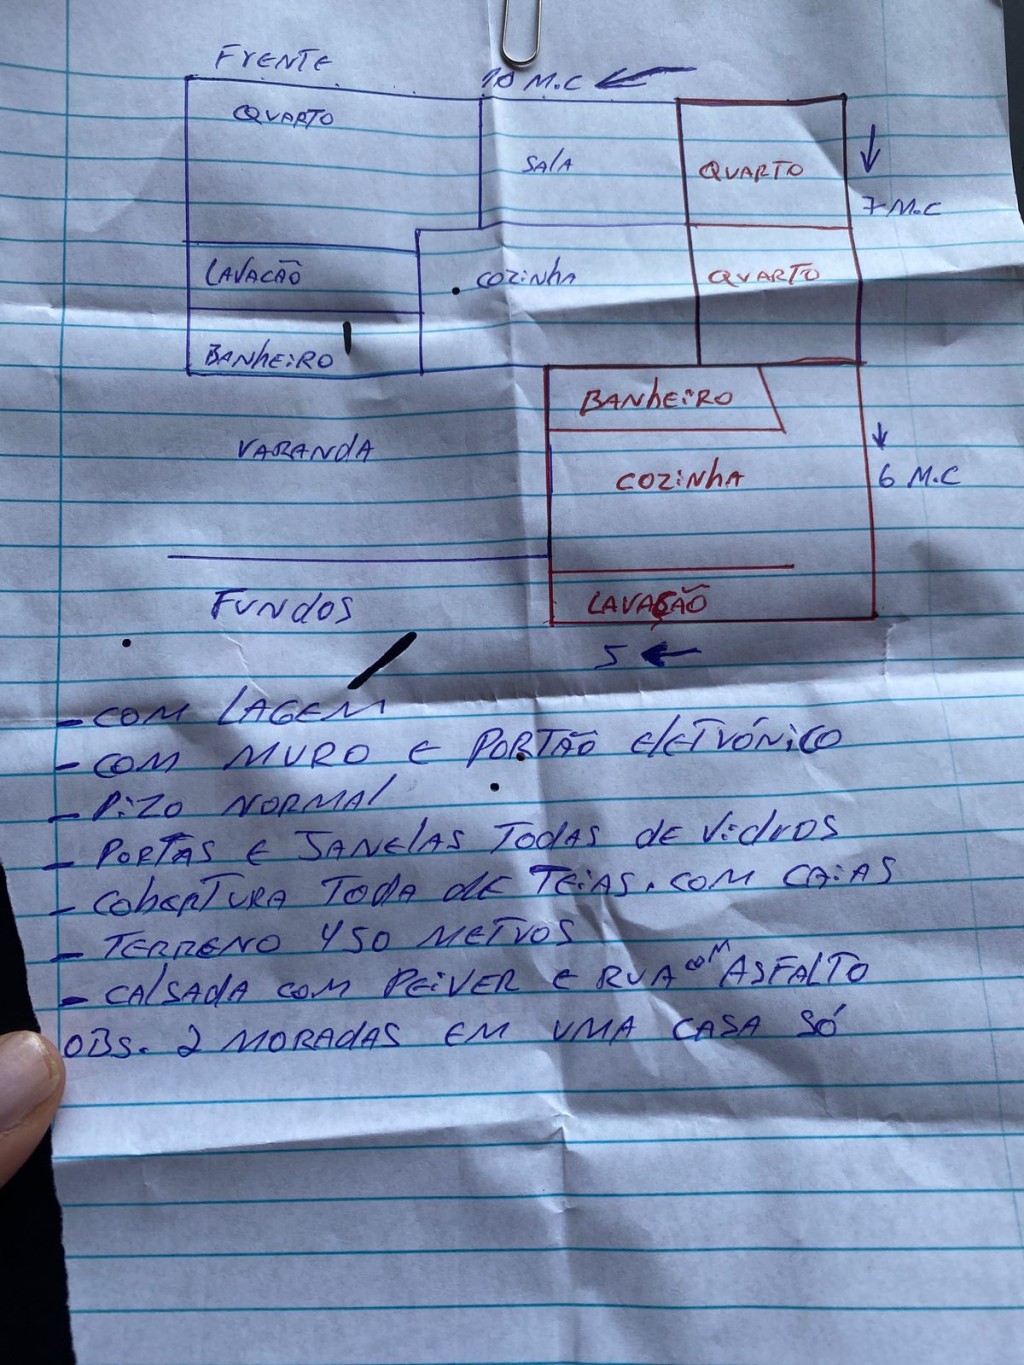 FRENTE
10 M.C
QUARTO
SALA
QUARTO
7 M.C
LAVACÃO
COZINHA
QUARTO
BANHEIRO
BANHEIRO
VARANDA
COZINHA
6 M.C
FUNDOS
LAVAÇÃO
5
- COM LAGEM
- COM MURO E PORTÃO ELETRÓNICO
- PIZO NORMAL
- PORTAS E JANELAS TODAS DE VIDROS
- COBERTURA TODA DE TEIAS. COM CAIAS
- TERRENO 450 METROS
- CALSADA COM PEIVER E RUA COM ASFALTO
OBS. 2 MORADAS EM UMA CASA SÓ